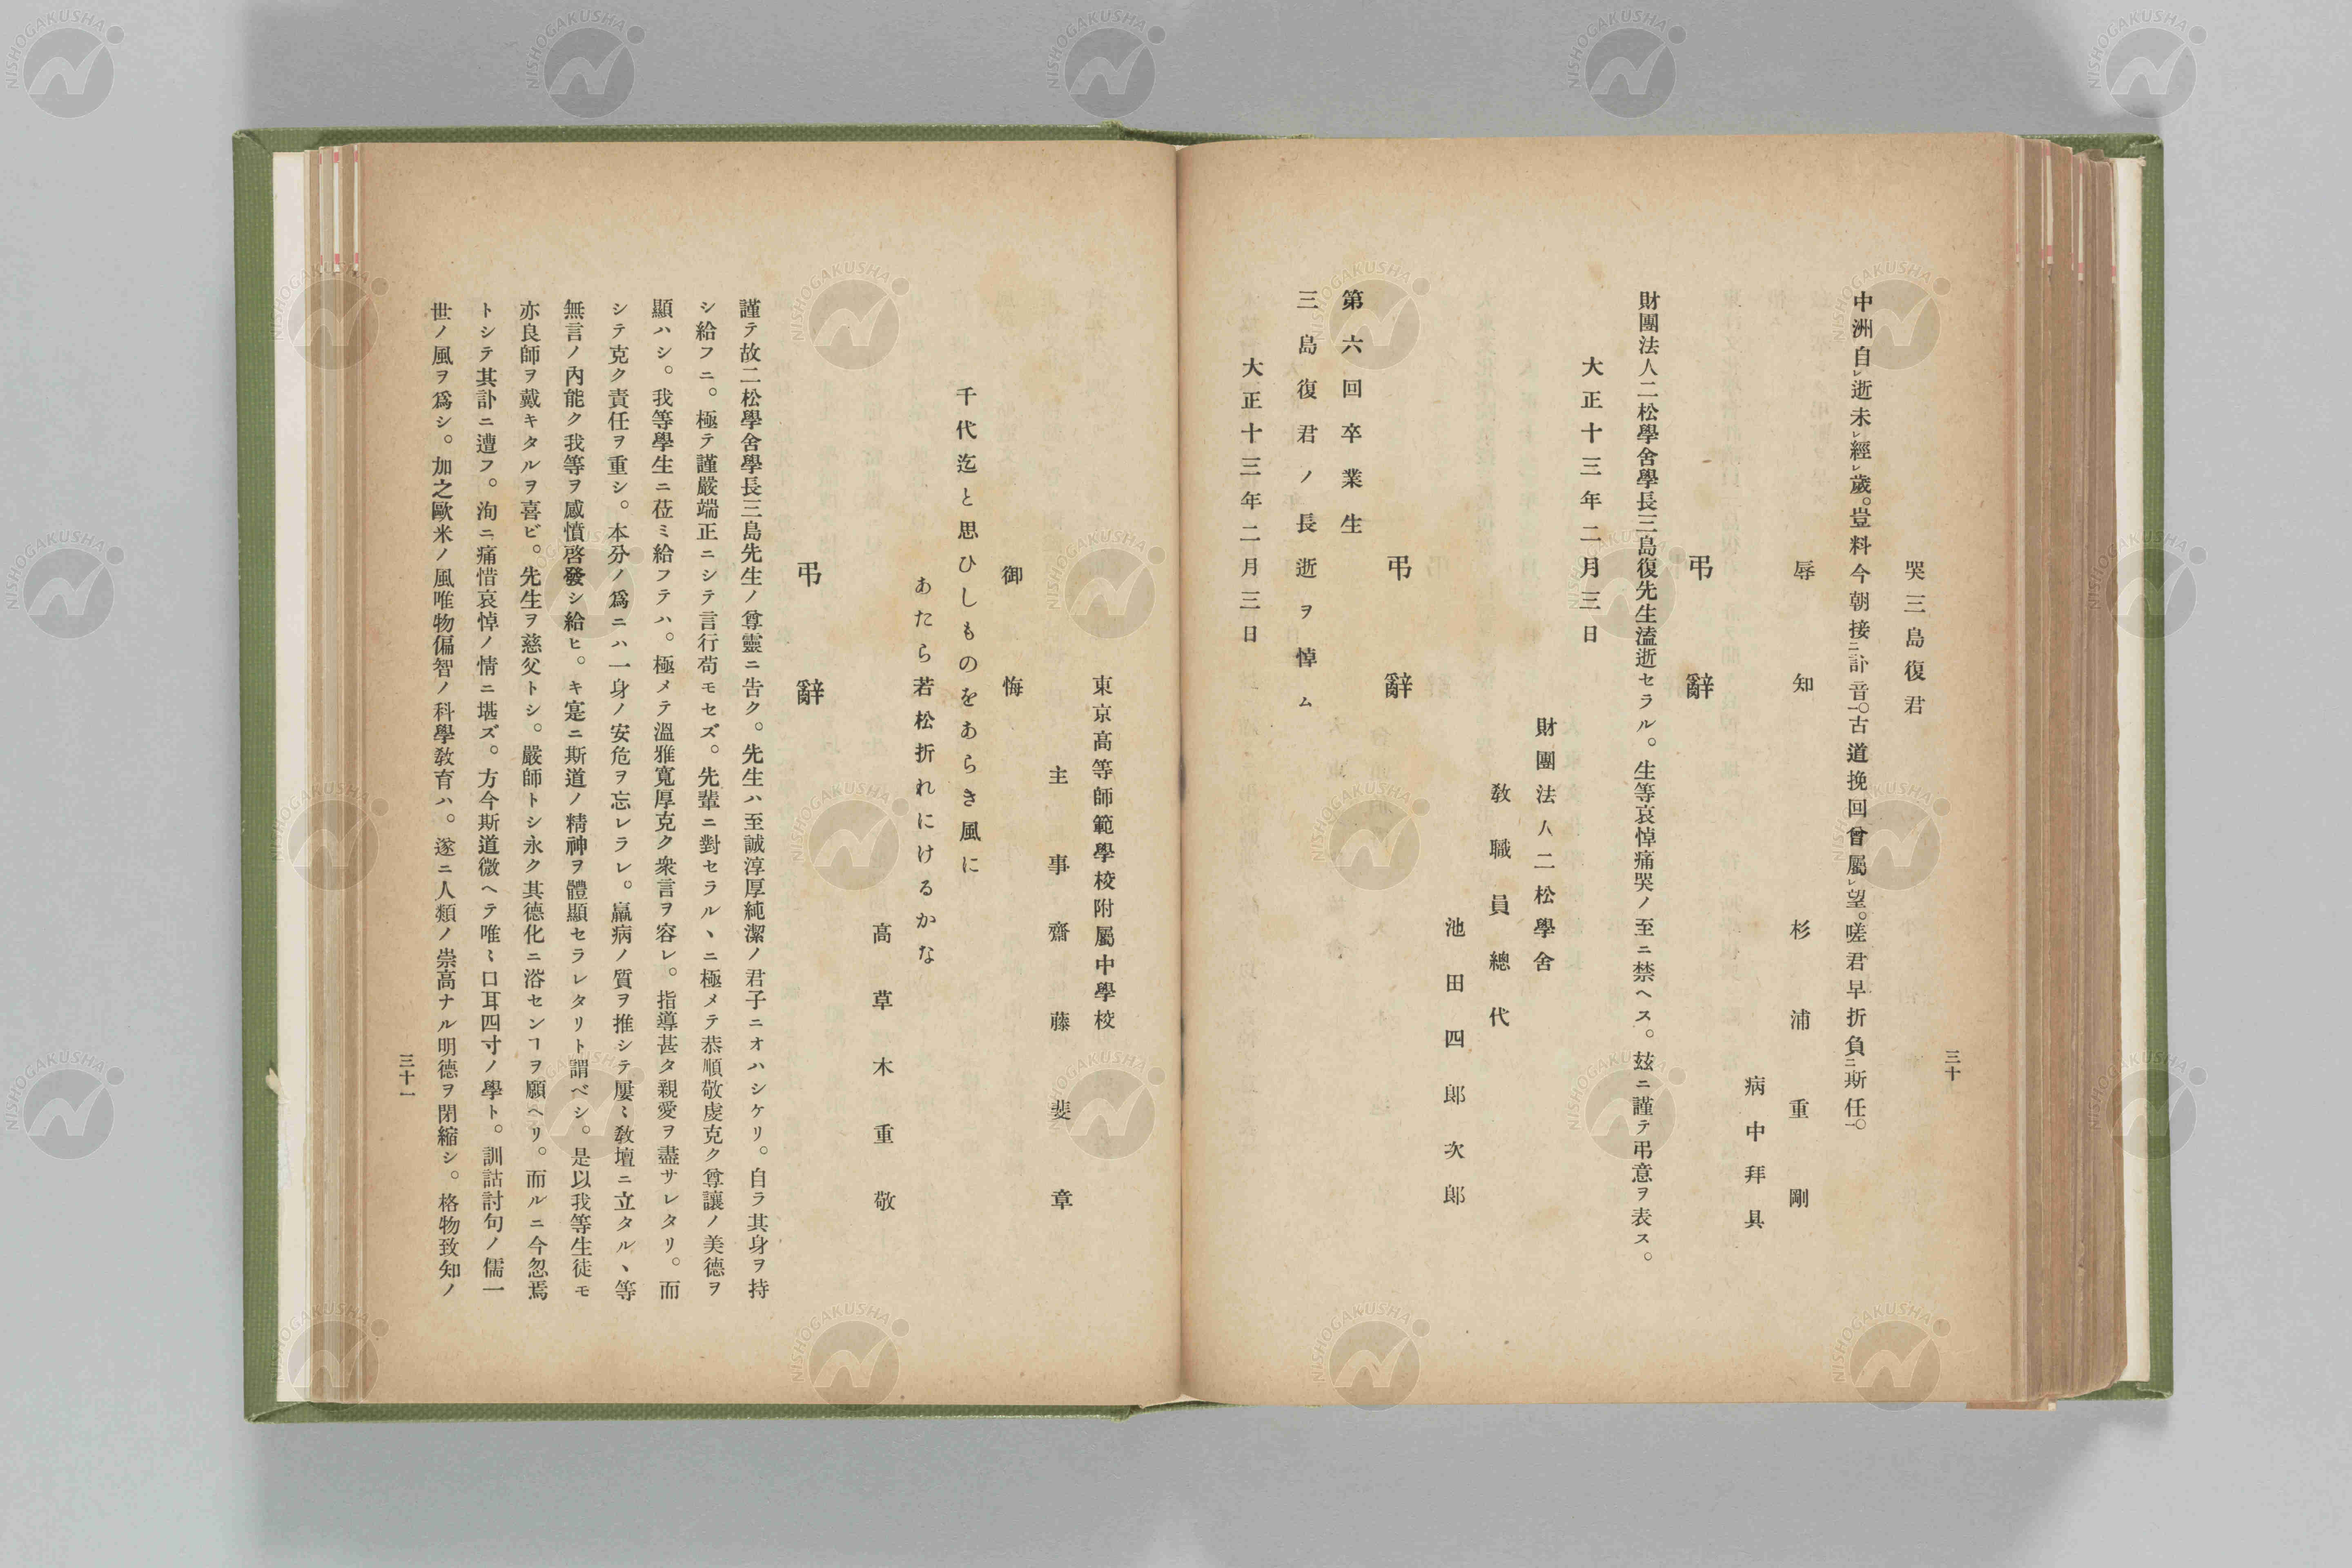 三十
哭三島復君
中洲自㆑逝未㆑經㆑歲。豈料今朝接㆓訃音㆒。古道挽回曾屬㆑望。嗟君早折負㆓斯任㆒。
辱知　杉浦重剛
病中拜具
弔辭
財團法人二松學舍學長三島復先生溘逝セラル。生等哀悼痛哭ノ至ニ禁ヘス。玆ニ謹テ弔意ヲ表ス。
大正十三年二月三日
財團法人二松學舍
敎職員總代
池田四郞次郞
弔辭
第六回卒業生
三島復君ノ長逝ヲ悼ム
大正十三年二月三日
東京高等師範學校附屬中學校
主事齋藤斐章
御悔
千代迄と思ひしものをあらき風に
あたら若松折れにけるかな
高草木重敬
弔辭
謹テ故二松學舍學長三島先生ノ尊靈ニ告ク。先生ハ至誠淳厚純潔ノ君子ニオハシケリ。自ラ其身ヲ持
シ給フニ。極テ謹嚴端正ニシテ言行苟モセズ。先輩ニ對セラルヽニ極メテ恭順敬虔克ク尊讓ノ美德ヲ
顯ハシ。我等學生ニ莅ミ給フテハ。極メテ溫雅寬厚克ク衆言ヲ容レ。指導甚タ親愛ヲ盡サレタリ。而
シテ克ク責任ヲ重シ。本分ノ爲ニハ一身ノ安危ヲ忘レラレ。羸病ノ質ヲ推シテ屢〻敎壇ニ立タルヽ等
無言ノ內能ク我等ヲ感憤啓發シ給ヒ。キ寔ニ斯道ノ精神ヲ體顯セラレタリト謂ベシ。是以我等生徒モ
亦良師ヲ戴キタルヲ喜ビ。先生ヲ慈父トシ。嚴師トシ永ク其德化ニ浴センヿヲ願ヘリ。而ルニ今忽焉
トシテ其訃ニ遭フ。洵ニ痛惜哀悼ノ情ニ堪ズ。方今斯道微ヘテ唯〻口耳四寸ノ學ト。訓詁討句ノ儒一
世ノ風ヲ爲シ。加之歐米ノ風唯物偏智ノ科學敎育ハ。遂ニ人類ノ崇高ナル明德ヲ閉縮シ。格物致知ノ
三十一